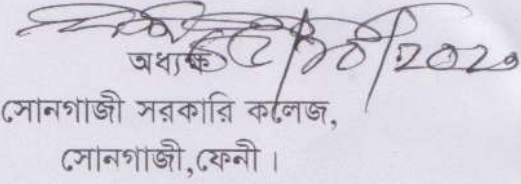 অধ্যক্ষ
সোনাগাজী সরকারি কলেজ,
সোনাগাজী,ফেনী ।